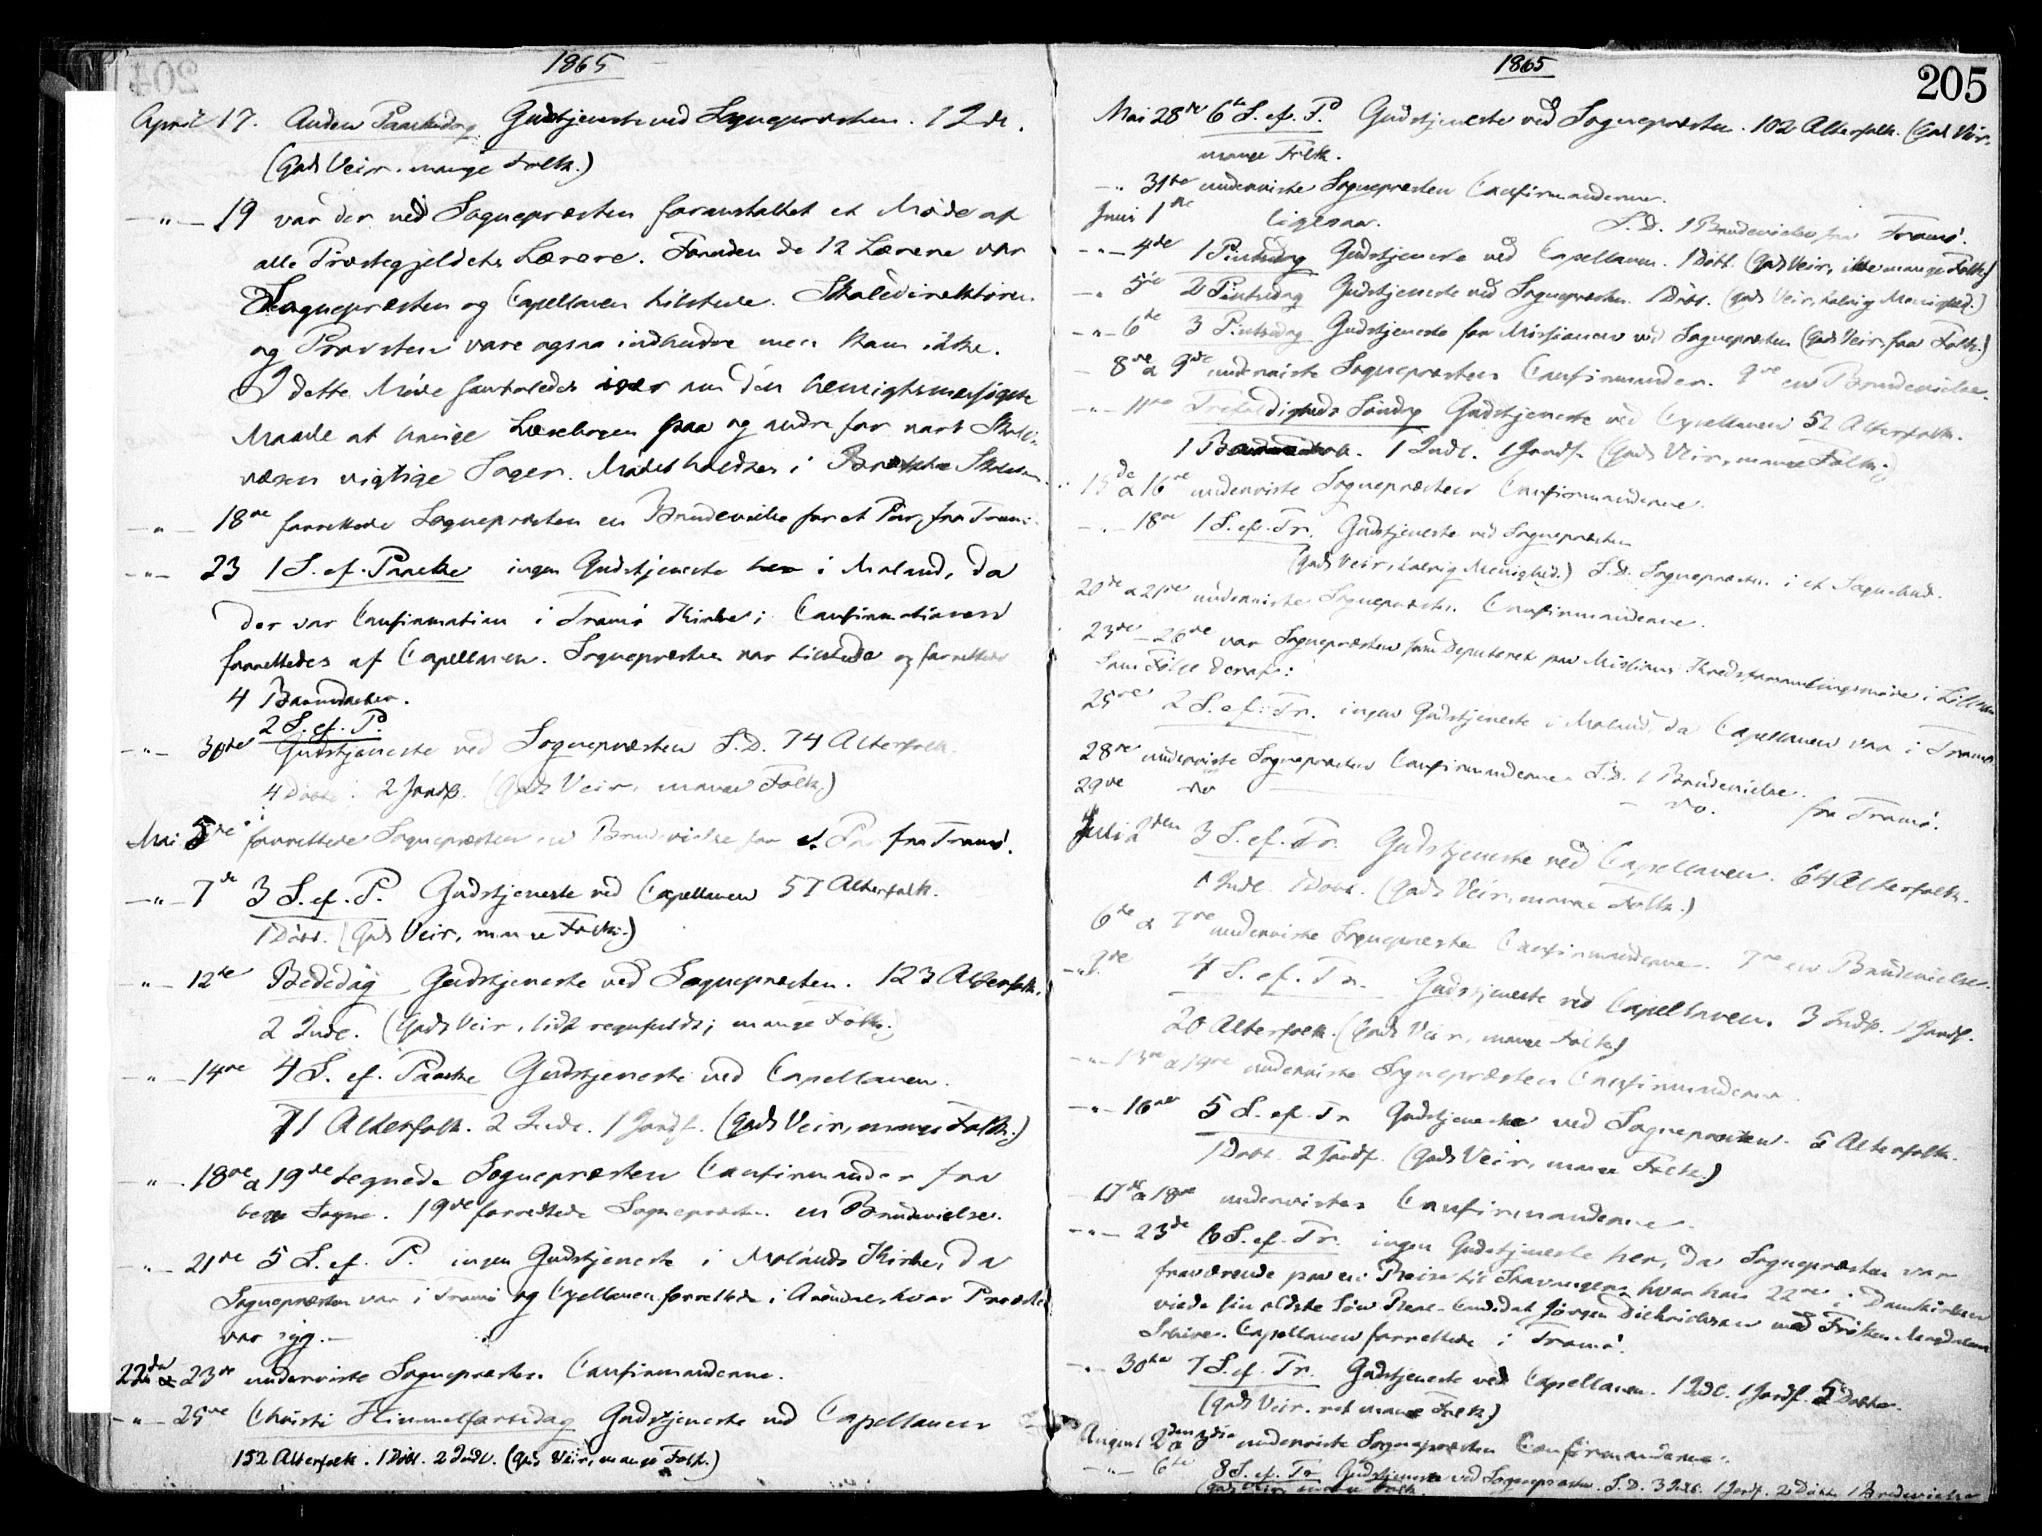 1865
April 17. Anden Paaskedag Gudstjeneste ved Sognepræsten. 1 Ind.
(Godt Veir. mange Folk.)
— " — 19 var der ved Sognepræsten foranstaltet et Møde af
alle Præstegjeldets Lærere. Foruden de 12 Lærere var
Sognepræsten og Capellanen tilstede. Skoledirektøren
og Provsten vare ogsaa indbudne men kom ikke.
I dette Møde samtaledes især om den hensigtsmæssigste
Maade at bruge Læsebogen paa og andre for vort Skole-
væsen vigtige Sager. Mødet holdtes i
— " — 18de forrettede Sognepræsten en Brudevielse for et Par fra Tromø
— " — 23 1 S. ef. Paaske ingen Gudstjeneste her i Moland, da
der var Confirmation i Tromø Kirke; Confirmationen
forrettedes af Capellanen. Sognepræsten var tilstede og forrettede
4 Barnedaaber.
2 S. ef. P.
— " — 30te Gudstjeneste ved Sognepræsten S.D. 74 Alterfolk.
4 Døbte. 2 Jordf. (Godt Veir, mange Folk.)
Mai 5te forrettede Sognepræsten en Brudevielse for et Par fra Tromø.
— " — 7de 3 S. ef. P. Gudstjeneste ved Capellanen 57 Alterfolk.
1 Døbt. (Godt Veir, mange Folk.)
— " — 12te Bededag Gudstjeneste ved Sognepræsten. 123 Alterfolk.
2 Indl. (Godt Veir, lidt regnfuldt; mange Folk.)
— " — 14de 4 S. ef. Paaske Gudstjeneste ved Capellanen.
71 Alterfolk. 2 Indl. 1 Jordf. (Godt Veir, mange Folk.)
— " — 18de & 19de tegnede Sognepræsten Confirmander fra
begge Sogne. 19de forrettede Sognepræsten en Brudevielse.
— " — 21de 5 S. ef. P. ingen Gudstjeneste i Molands Kirke, da
Sognepræsten var i Tromø og Capellanen forrettede i Arendal, hvor Præsten
var syg. —
22de & 23de underviste Sognepræsten Confirmanderne.
— " — 25de Christi Himmelfartsdag Gudstjeneste ved Capellanen
152 Alterfolk. 1 Døbt. 2 Indl. (Godt Veir, mange Folk.)
1865
205
Mai 28de 6te S. ef. P. Gudstjeneste ved Sognepræsten. 102 Alterfolk. (Godt Veir,
mange Folk.
— " 31te underviste Sognepræsten Confirmanderne.
Juni 1ste ligesaa. S.D. 1 Brudevielse fra Tromø.
— " — 4de 1 Pintsedag Gudstjeneste ved Capellanen. 1 Døbt. (Godt Veir, ikke mange Folk)
— " 5te 2 Pintsedag Gudstjeneste ved Sognepræsten 1 Døbt. (godt Veir, talrig Menighed.)
— " — 6te 3 Pintsedag Gudstjeneste for Missionen ved Sognepræsten (godt Veir, faa Folk.)
— 8de & 9de underviste Sognepræsten Confirmander. 9de en Brudevielse.
— " — 11te Trefoldigheds Søndag Gudstjeneste ved Capellanen 52 Alterfolk.
1 Indl. 1 Jordf. (Godt Veir, mange Folk.)
15de & 16de underviste Sognepræsten Confirmanderne.
— " — 18de 1 S. ef. Tr. Gudstjeneste ved Sognepræsten
(godt Veir, talrig Menighed.) S.D. Sognepræsten i et Sognebud.
20de & 21de underviste Sognepræsten Confirmanderne.
23de — 26de var Sognepræsten som Deputeret paa Missions Kredsforsamlingsmøde i
Som Følge deraf:
25de 2 S. ef. Tr. ingen Gudstjeneste i Moland, da Capellanen var i Tromø
28de underviste Sognepræsten Confirmanderne S.D. 1 Brudevielse.
29de do — do. fra Tromø.
Juli 2den 3 S. ef. Tr. Gudstjeneste ved Capellanen. 64 Alterfolk.
1 Indl. 1 Døbt. (Godt Veir, mange Folk.)
6te & 7de underviste Sognepræsten Confirmanderne. 7de en Brudevielse.
— " 9de 4 S. ef. Tr. Gudstjeneste ved Capellanen. 3 Indl. 1 Jordf.
20 Alterfolk. (Godt Veir, mange Folk)
— " — 13de & 14de underviste Sognepræsten Confirmanderne.
— " — 16de 5 S. ef. Tr Gudstjeneste ved Sognepræsten. 5 Alterfolk.
1 Døbt. 2 Jordf. (Godt Veir, mange Folk.)
— 17de & 18de undervistes Confirmanderne.
— " — 23de 6 S. ef. Tr. ingen Gudstjeneste her, da Sognepræsten var
fraværende paa en Reise til Stavanger, hvor han 22de i Domkirken
viede sin ældste Søn Real-Candidat Jørgen Diderichsen med Frøken
Capellanen forrettede i Tromø.
— " — 30te 7 S. ef. Tr. Gudstjeneste ved Capellanen. 1 Indl. 1 Jordf. 5 Døbte.
(godt Veir, ret mange Folk)
August 2den & 3die underviste Sognepræsten Confirmanderne.
— " — 6te 8 S. ef. Tr Gudstjeneste ved Sognepræsten. S.D. 3 Indl. 1 Jordf. 2 Døbte 1 Brudevielse
(godt Veir, mange Folk.